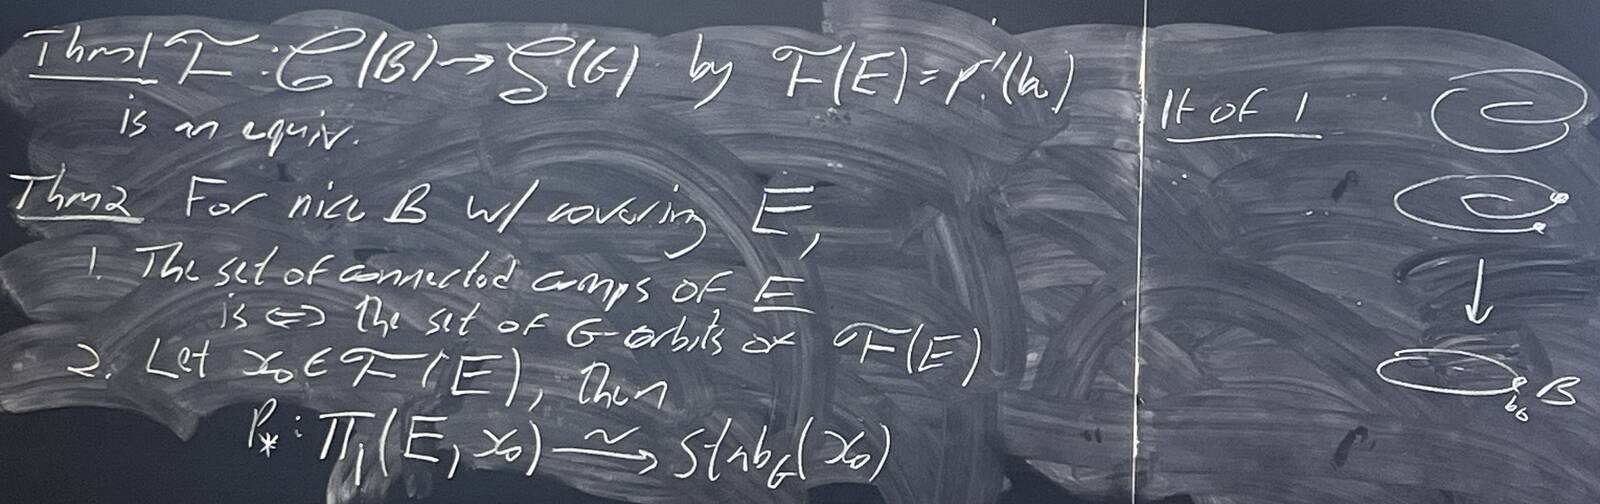 Thm1 F : C(B) → S(G) by F(E) = p⁻¹(b₀)
is an equiv.
Thm2 For nice B w/ covering E,
1. The set of connected comps of E
is ⇔ the set of G-orbits of F(E)
2. Let x₀ ∈ F(E), then
P_* : π₁(E, x₀) ⥲ Stab_G(x₀)
Pf of 1
B
b₀